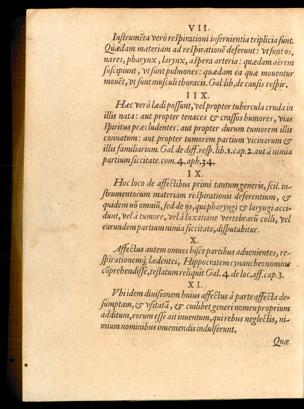 VII.
Instrumẽta verò respirationi inseruientia triplicia sunt.
Quædam materiam ad respirationẽ deferunt: vt sunt os,
nares, pharynx, larynx, aspera arteria: quædam aërem
suscipiunt, vt sunt pulmones: quædam ea quæ mouentur
mouẽt, vt sunt musculi thoracis. Gal. lib. de causis respir.
IIX.
Hæc verò lædi possunt, vel propter tubercula cruda in
illis nata: aut propter tenaces & crassos humores, vias
spiritus præcludentes: aut propter durum tumorem illis
connatum: aut propter tumorem partium vicinarum &
illis familiarium. Gal. de diff. resp. lib. 1. cap. 2. aut à nimia
partium siccitate. com. 4. aph. 34.
IX.
Hoc loco de affectibus primi tantum generis, scil. in-
strumentorum materiam respirationis deferentium, &
quidem nõ omniũ, sed de iis, qui pharyngi & laryngi acci-
dunt, vel à tumore, vel à luxatione vertebrarũ colli, vel
earundem partium nimia siccitate, disputabitur.
X.
Affectus autem omnes hisce partibus aduenientes, re-
spirationemq́; lædentes, Hippocratem cynanches nomine
cõprehendisse, testatum reliquit Gal. 4. de loc. aff. cap. 3.
XI.
Vbi idem diuisionem huius affectus à parte affecta de-
sumptam, & vsitatã, & cuilibet generi nomen proprium
additum, eorum esse ait inuentum, qui rebus neglectis, ni-
mium nominibus inueniendis indulserunt.
Quæ